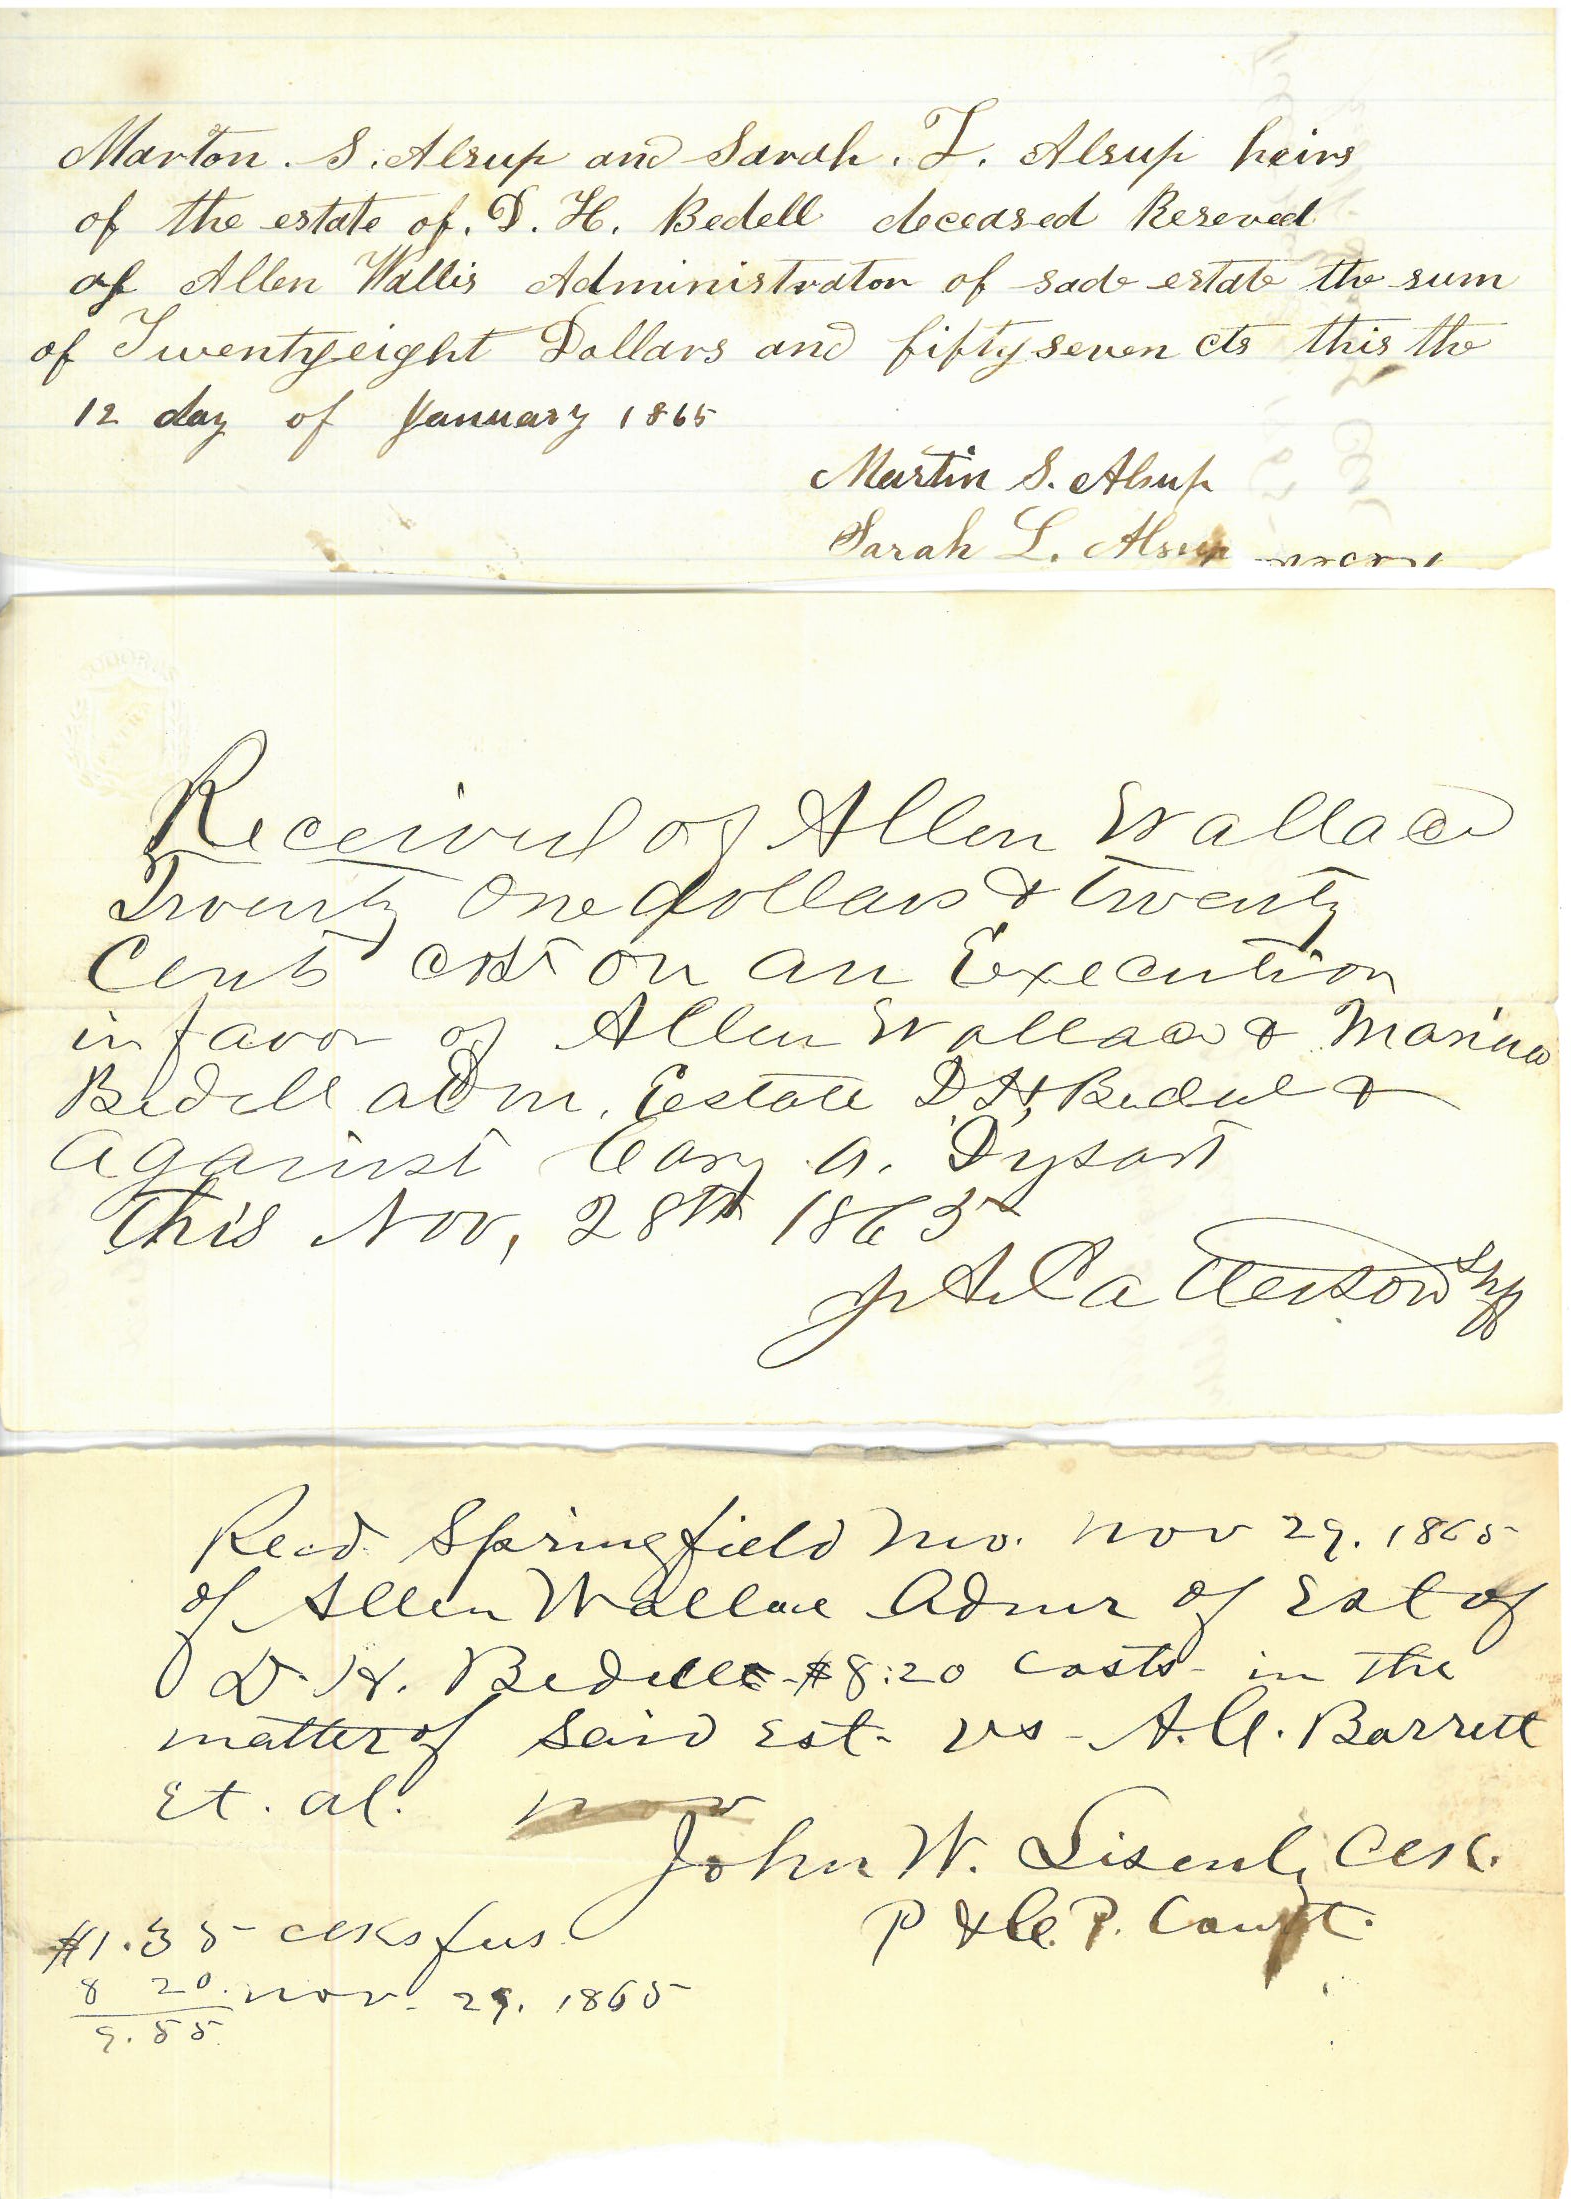 Marton . S. Alsup and Sarah . L. Alsup heirs
of the estate of. D. H. Bedell deceased Reseved
of Allen Wallis Administrator of sade estate the sum
of Twentyeight Dollars and fifty seven cts this the
12 day of January 1865
Martin S. Alsup
Sarah L. Alsup
Received of Allen Wallace
Twenty One dollars & twenty
Cents cost on an Execution
in favor of Allen Wallace &
Bedell adm. Estate D H Bedell &
against Cary A. Dysart
This Nov, 28th 1865
Patterson Shff
Recd. Springfield Mo. Nov 29. 1865
of Allen Wallace Admr of Est of
D. H. Bedell $8.20 costs in the
matter of said Est. vs A. C. Barrett
Et. al. Nov
John W. Lisenby Clk.
P & C. P. Court.
$1.35 clks fees
8 20. Nov. 29. 1865
9.55